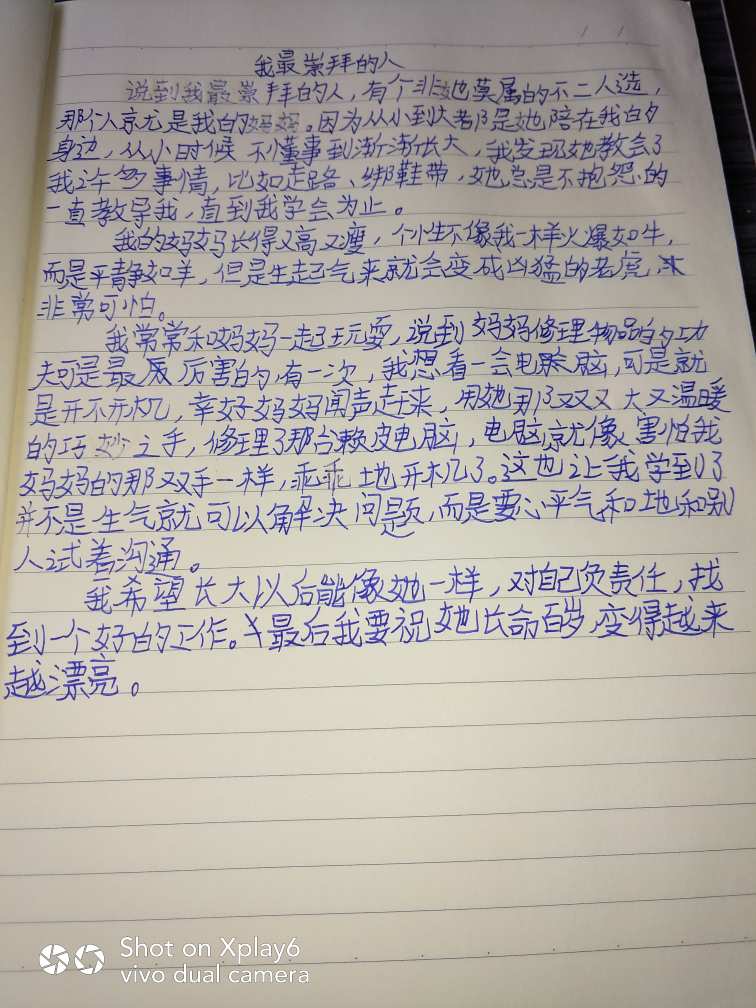 我最崇拜的人
说到我最崇拜的人，有个非她莫属的不二人选，
那个人就是我的妈妈。因为从小到大都是她陪在我的
身边，从小时候不懂事到渐渐长大，我发现她教会了
我许多事情，比如走路、绑鞋带，她总是不抱怨的
一直教导我，直到我学会为止。
我的妈妈长得又高又瘦，个性不像我一样火爆如牛，
而是平静如羊，但是生起气来就会变成凶猛的老虎，
非常可怕。
我常常和妈妈一起玩耍，说到妈妈修理物品的功
夫可是最厉害的，有一次，我想看一会电脑，可是就
是开不开机，幸好妈妈闻声走来，用她那双又大又温暖
的巧妙之手，修理了那台赖皮电脑，电脑就像害怕我
妈妈的那双手一样，乖乖地开机了。这也让我学到了
并不是生气就可以解决问题，而是要心平气和地和别
人试着沟通。
我希望长大以后能像她一样，对自己负责任，找
到一个好的工作。最后我要祝她长命百岁，变得越来
越漂亮。
Shot on Xplay6
vivo dual camera